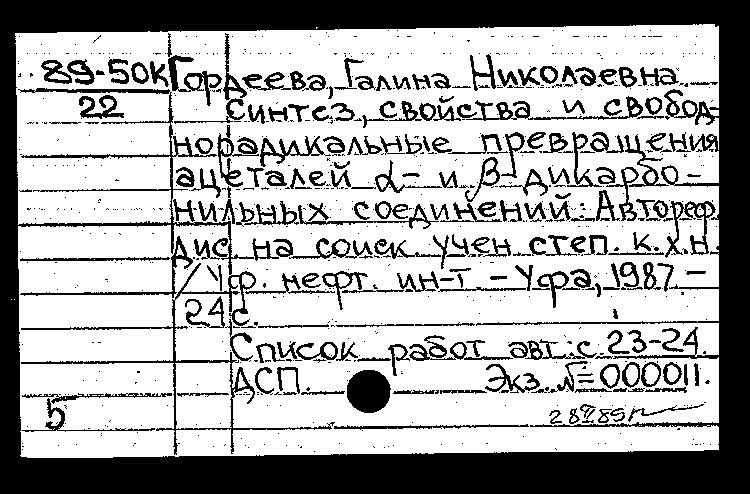 89-50К Гордеева, Галина Николаевна.
22 Синтез, свойства и свобод-
норадикальные превращения
ацеталей α- и β-дикарбо-
нильных соединений: Автореф.
дис. на соиск. учен. степ. к.х.н.
/Уф. нефт. ин-т. - Уфа, 1987. -
24 с.
Список работ авт.: с. 23-24.
ДСП. Экз. №=000011.
5